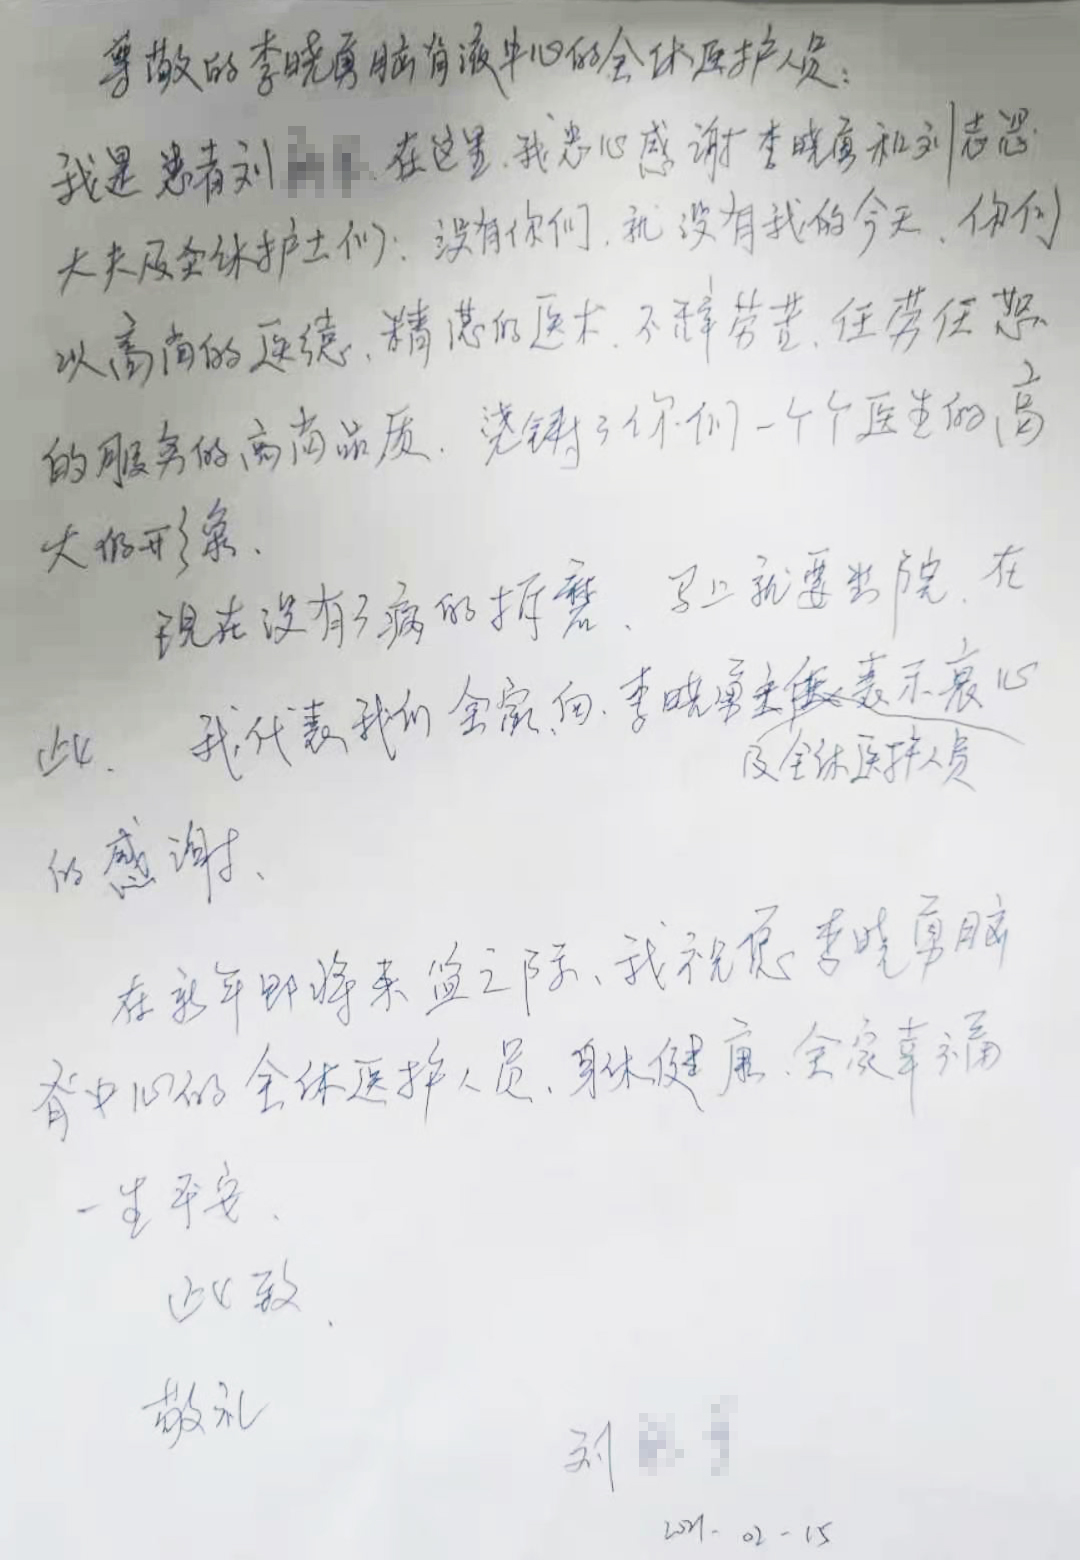 尊敬的李晓勇脑脊液中心的全体医护人员：
我是患者刘 在这里、我衷心感谢李晓勇和刘志
大夫及全体护士们：没有你们、就没有我的今天、你们
以高尚的医德、精湛的医术、不辞劳苦、任劳任怨
的服务的高尚品质、浇铸了你们一个个医生的高
大的形象、
现在没有了病的折磨、马上就要出院、在
此、我代表我们全家、向、李晓勇主任表示衷心
及全体医护人员
的感谢、
在新年即将来临之际、我祝愿李晓勇脑
脊中心的全体医护人员、身体健康、全家幸福
一生平安、
此致、
敬礼
刘
2021-02-15